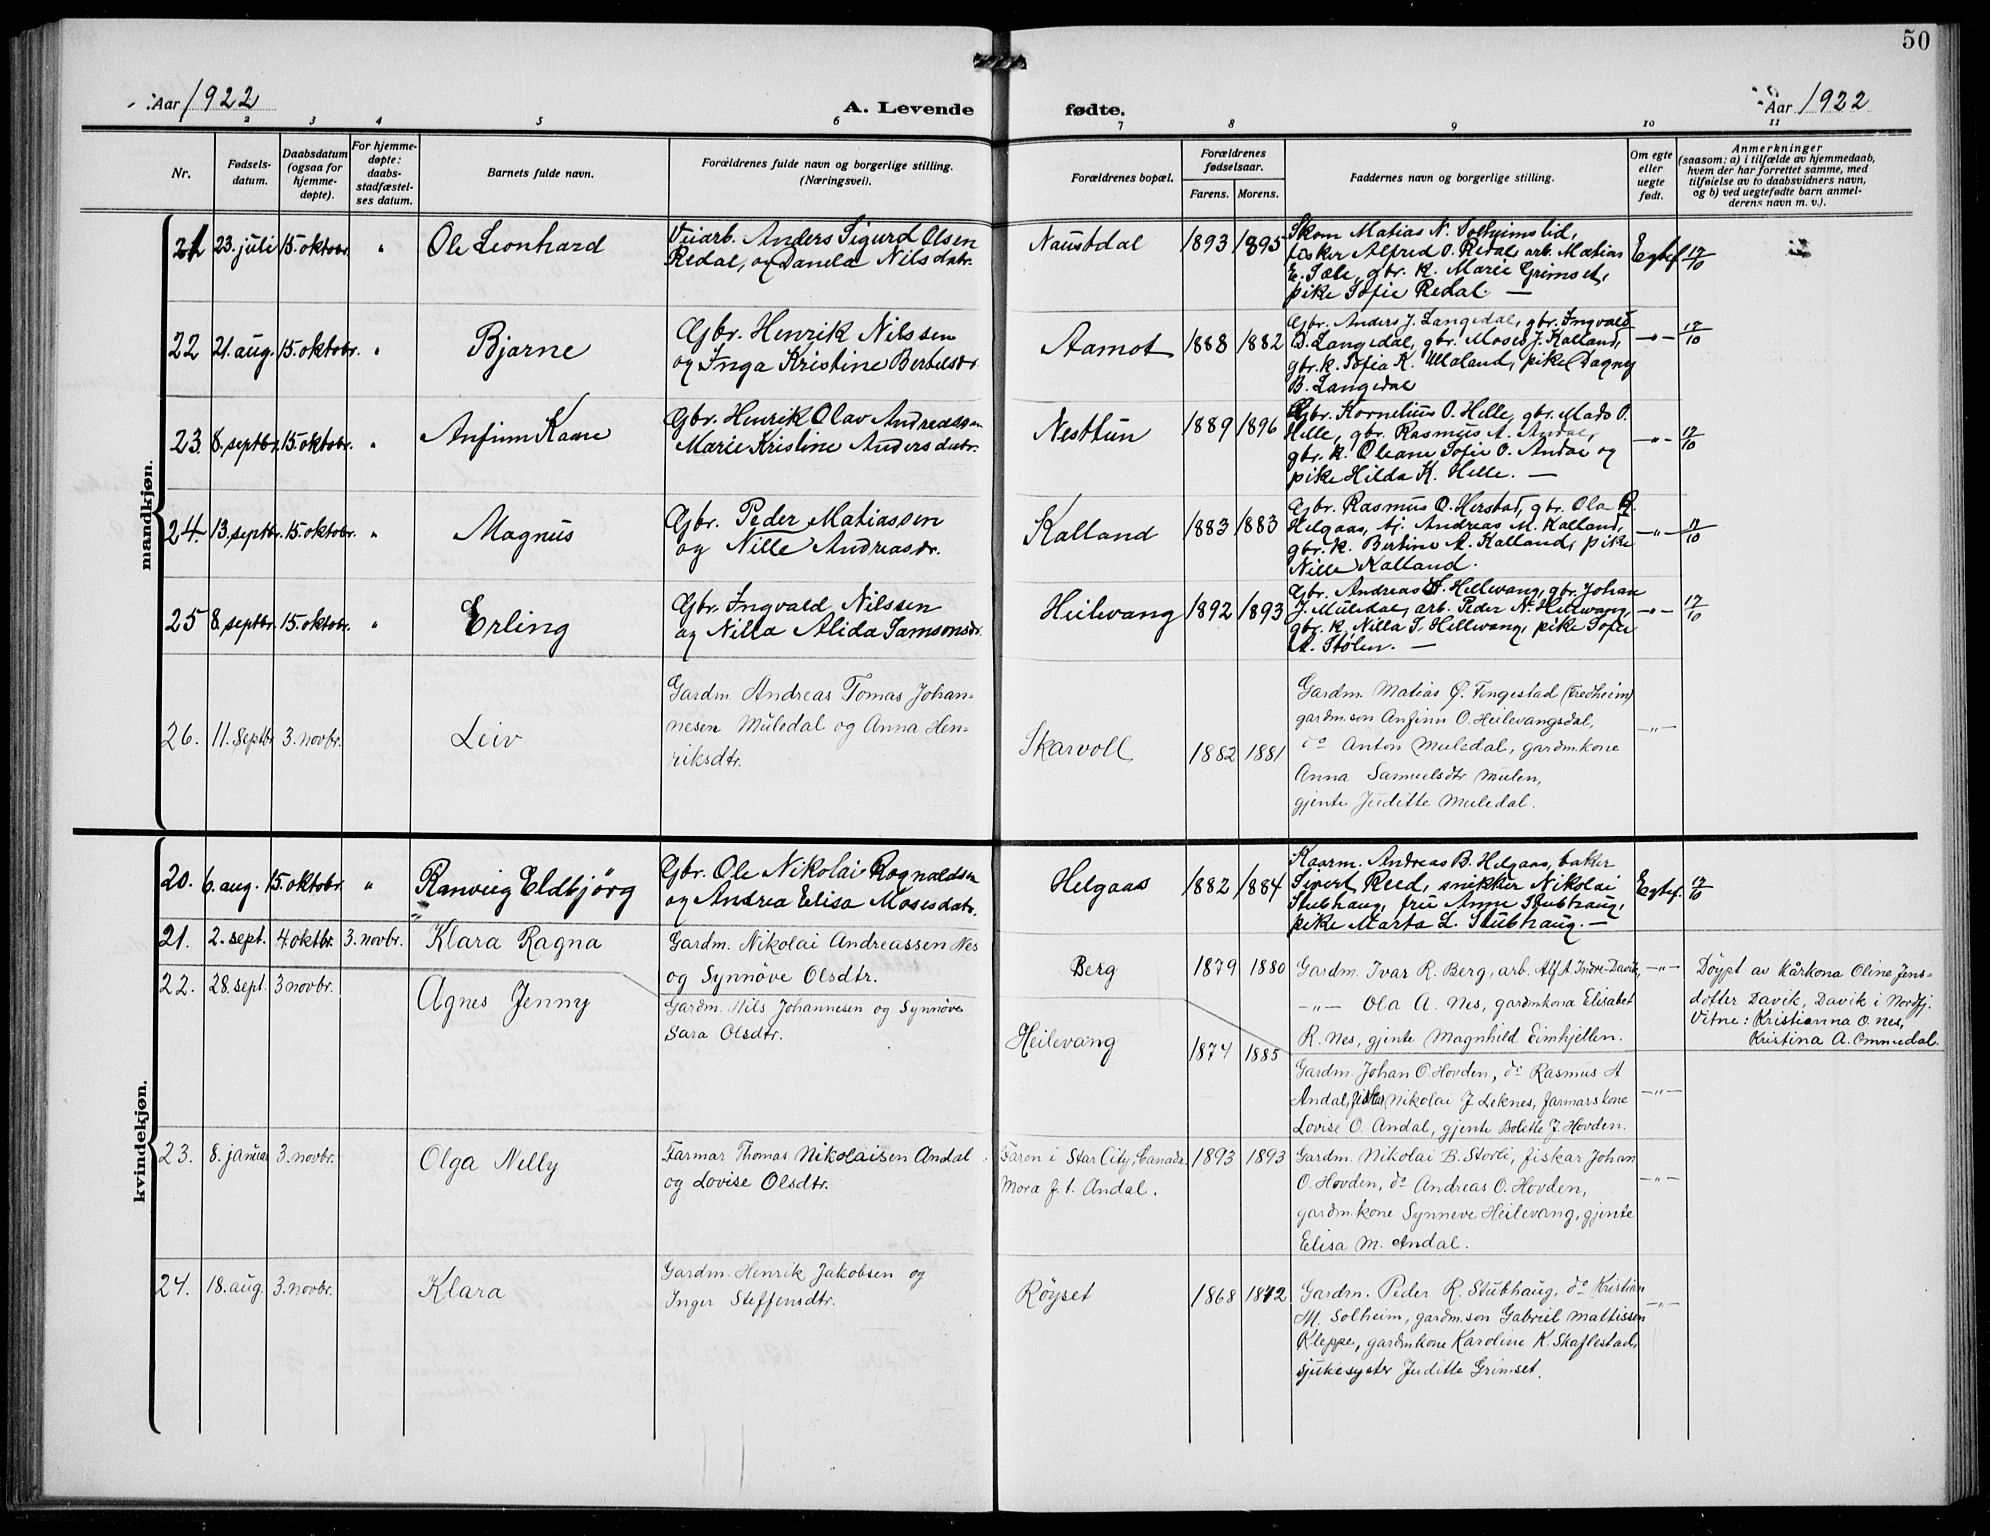 50
Aar 1922
A. Levende
fødte.
Aar 1922
1 2 3 4 5 6 7 8 9 10 11
Nr.
Fødsels-
datum.
Daabsdatum
(ogsaa for
hjemme-
døpte).
For hjemme-
døpte:
daabs-
stadfæstel-
ses datum.
Barnets fulde navn.
Forældrenes fulde navn og borgerlige stilling.
(Næringsvei).
Forældrenes bopæl.
Forældrenes
fødselsaar.
Farens. Morens.
Faddernes navn og borgerlige stilling.
Om egte
eller
uegte
født.
Anmerkninger
(saasom: a) i tilfælde av hjemmedaab,
hvem der har forrettet samme, med
tilføielse av to daabsvidners navn,
og b) ved uegtefødte barn anmel-
derens navn m. v.).
mandkjøn.
21 23. juli 15. oktobr. " Ole Leonhard
Veiarb. Anders Sigurd Olsen
Redal, og Danela Nilsdatr.
Naustdal 1893 1895
Skom Matias N. Solheimslid,
fisker Alfred O. Redal, arb. Matias
E. Sæle, gbr. k. Marie Grimset,
pike Sofie Redal. —
Egtef. 17/10
22 21. aug. 15. oktobr. " Bjarne
Gbr. Henrik Nilssen
og Inga Kristine Bertelsdr.
Aamot 1888 1882
Gbr. Anders J. Langedal, gbr. Ingvald
B. Langedal, gbr. Moses J. Kalland,
gbr. k. Sofia K. Ulaland, pike Dagny
B. Langedal
—"— 17/10
23. 8. septbr. 15. oktobr. " Anfinn Kaare
Gbr. Henrik Olav Andreassen
Marie Kristine Andersdatr.
Nesttun 1889 1896
Gbr. Kornelius O. Helle, gbr. Mads O.
Helle, gbr. Rasmus A. Andal,
gbr. k. Oleane Sofie O. Andal og
pike Hilda K. Helle. —
—"— 17/10
24. 13. septbr. 15. oktobr. " Magnus
Gbr. Peder Matiassen
og Nille Andreasdr.
Kalland 1883 1883
Gbr. Rasmus O. Herstad, gbr. Ola R.
Helgaas, tj. Andreas M. Kalland,
gbr. k. Bertine A. Kalland, pike
Nille Kalland.
—"— 17/10
25 8. septbr. 15. oktobr. " Erling
Gbr. Ingvald Nilssen
og Nilla Alida Samsonsdr.
Heilevang 1892 1893
Gbr. Andreas A. Hellevang, gbr. Johan
J. Muledal, arb. Peder N. Hellevang,
gbr. k. Nilla S. Hellevang, pike Sofie
A. Stølen. —
—"— 17/10
26. 11. Septbr 3. novbr. Leiv
Gardm. Andreas Tomas Johan-
nesen Muledal og Anna Hen-
riksdtr.
Skarvoll 1882 1881
Gardm. Matias Ø. Tingestad (Fredheim)
gardm.son Anfinn O. Heilevangsdal,
do Anton Muledal, gardmkone
Anna Samuelsdtr Mulen,
gjente Juditte Muledal.
—"—
kvindekjøn.
20. 6. aug. 15. oktobr. " Ranveig Eldbjørg
Gbr. Ole Nikolai Rognaldsen
og Andrea Elisa Mosesdatr.
Helgaas 1882 1884
Kaarm. Andreas B. Helgaas, baker
Sivert Reed, snikker Nikolai
Stubhaug, fru Anne Stubhaug,
pike Marta L. Stubhaug. —
Egtef. 17/10
21. 2. sept. 4 oktbr. 3. novbr. Klara Ragna
Gardm. Nikolai Andreassen Nes
og Synnøve Olsdtr.
Berg 1879 1880
Gardm. Ivar R. Berg, arb. Alf A. Indre-Davik,
—"— Ola A. Nes, gardmkona Elisabet
R. Nes, gjente Magnhild Eimhjellen.
—"—
Døypt av kårkona Oline Jens-
dotter Davik, Davik i Nordfj.
Vitne: Kristianna O. Nes,
Kristina A. Ommedal.
22. 28. sept. 3 novbr. Agnes Jenny
Gardm. Nils Johannesen og Synnøve
Sara Olsdtr.
Heilevang 1874 1885
Gardm. Johan O. Hovden, do Rasmus A
Andal, fisker Nikolai J Leknes, farmarskone
Lovise O. Andal, gjente Bolette J. Hovden.
—"—
23. 8. januar 3. novbr. Olga Nelly
Farmar Thomas Nikolaisen Andal
og Lovise Olsdtr.
Faren i Star City, Canada
Mora f. t. Andal.
1893 1893
Gardm. Nikolai B. Storli, fiskar Johan
O. Hovden, do Andreas O. Hovden,
gardmkone Synneve Heilevang, gjente
Elisa M. Andal.
—"—
24. 18. aug. 3. novbr. Klara
Gardm. Henrik Jakobsen og
Inger Steffensdtr.
Røyset 1868 1872
Gardm. Peder R. Stubhaug, do Kristian
M. Solheim, gardm.son Gabriel Mattissen
Kleppe, gardmkone Karoline K. Skaflestad,
sjukesyster Juditte Grimset.
—"—